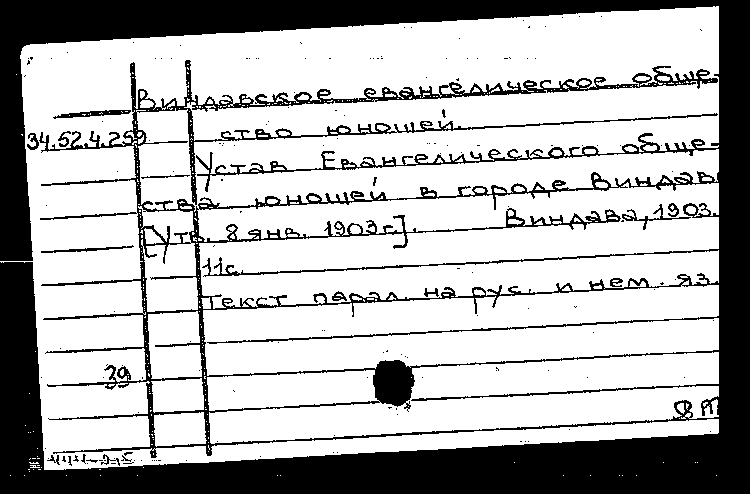 Виндавское евангелическое обще-
34.52.4.259 ство юношей.
Устав Евангелического обще-
ства юношей в городе Виндав
[Утв. 8 янв. 1903 г.]. Виндава, 1903.
11с.
Текст парал. на рус. и нем. яз.
39